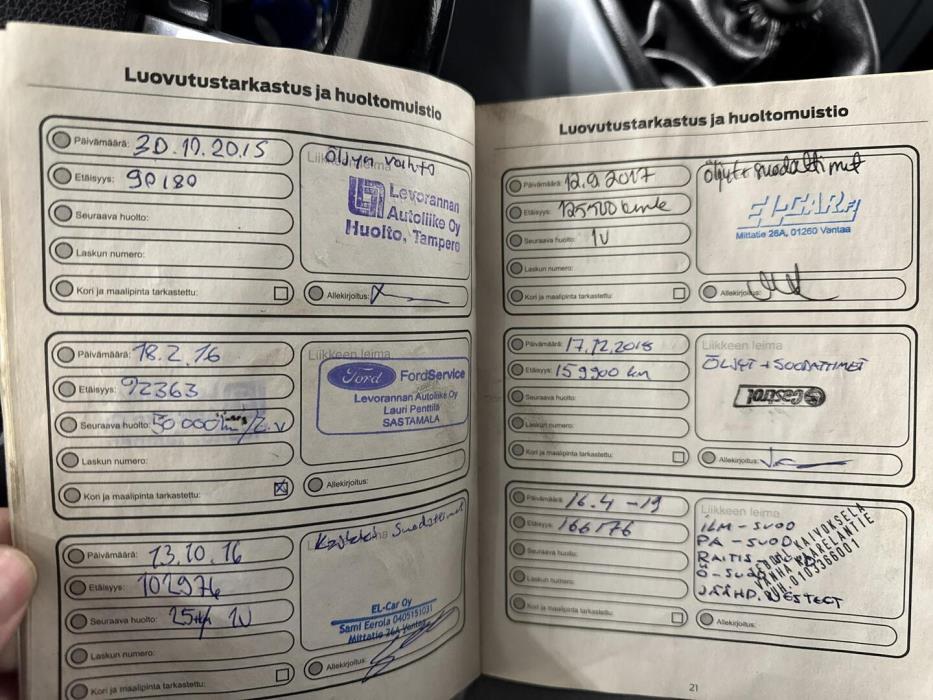 Luovutustarkastus ja huoltomuistio
Päivämäärä: 30.10.2015
Etäisyys: 90180
Seuraava huolto:
Laskun numero:
Kori ja maalipinta tarkastettu:
Liikkeen leima
Öljyn vaihto
Levorannan
Autoliike Oy
Huolto, Tampere
Allekirjoitus:
Päivämäärä: 18.2.16
Etäisyys: 92363
Seuraava huolto: 50 000 km/2.v
Laskun numero:
Kori ja maalipinta tarkastettu:
Liikkeen leima
Ford FordService
Levorannan Autoliike Oy
Lauri Penttilä
SASTAMALA
Allekirjoitus:
Päivämäärä: 13.10.16
Etäisyys: 102974
Seuraava huolto: 25tkm 1V
Laskun numero:
Kori ja maalipinta tarkastettu:
EL-Car Oy
Sami Eerola 0405151031
Mittatie 26A Vantaa
Allekirjoitus:
Luovutustarkastus ja huoltomuistio
Päivämäärä: 12.9.2017
Etäisyys: 125500
Seuraava huolto: 1V
Laskun numero:
Kori ja maalipinta tarkastettu:
Öljyt+suodattimet
EL-CAR
Mittatie 26A, 01260 Vantaa
Allekirjoitus:
Päivämäärä: 17.12.2018
Etäisyys: 159900 km
Seuraava huolto:
Laskun numero:
Kori ja maalipinta tarkastettu:
Liikkeen leima
ÖLJYT + SUODATTIMET
Castrol
Allekirjoitus:
Päivämäärä: 16.4 -19
Etäisyys: 166176
Seuraava huolto:
Laskun numero:
Kori ja maalipinta tarkastettu:
Liikkeen leima
ILM-SUOD
PA-SUOD
RAITIS
Ö-SUOD
JÄÄHD.NESTEET
KAIVOKSELA
VANHA KAARELANTIE
PUH. 0103366001
Allekirjoitus:
21